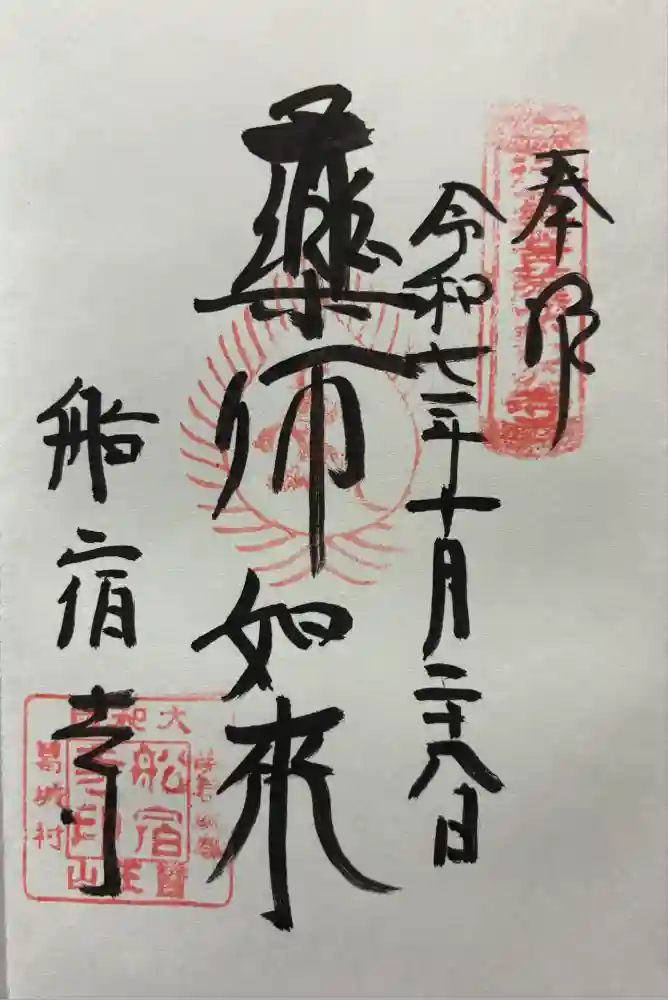 奉拝
令和七年十月二十八日
藥師如来
船宿寺
大和国
葛城村
船宿寺印
醫王山